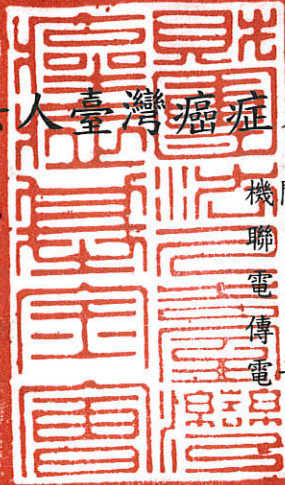 人臺灣癌症
機
聯
電
傳
電
財團法人臺灣
癌症基金會